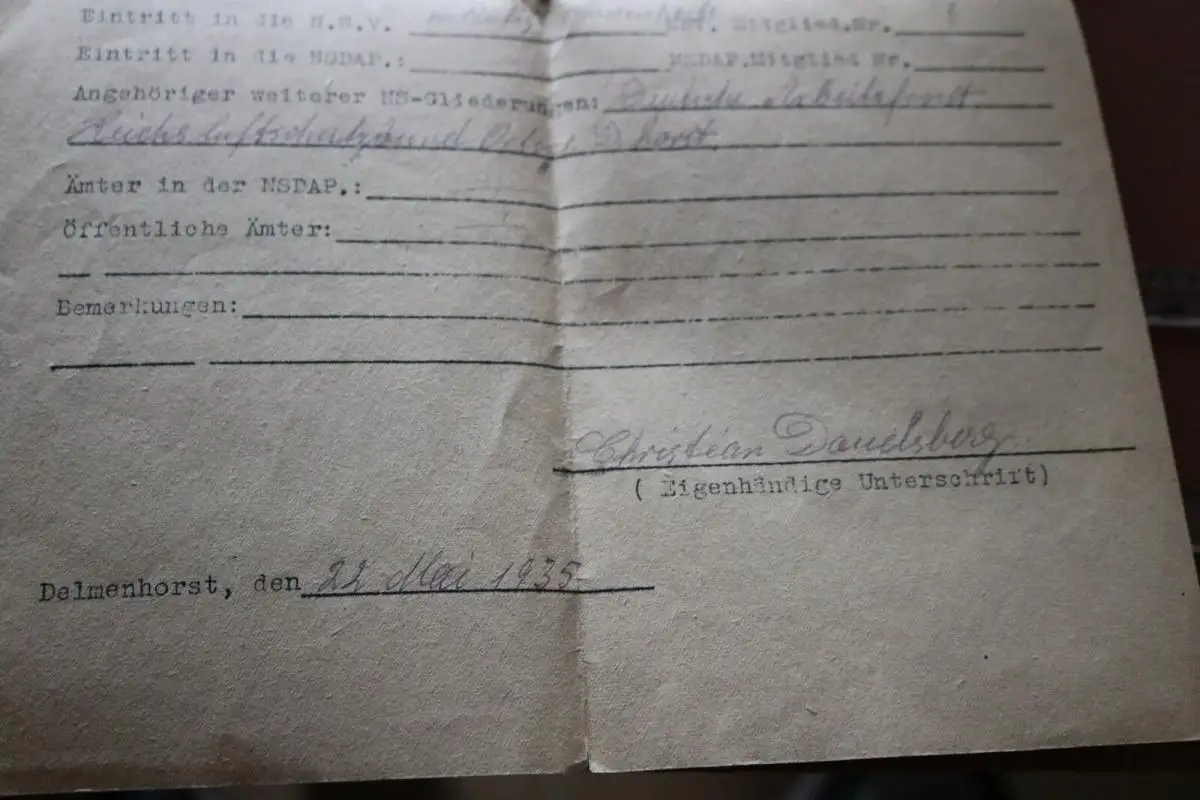 Eintritt in die N.S.V. Mitglied.Nr.
Eintritt in die NSDAP.: NSDAP.Mitglied Nr.
Angehöriger weiterer NS-Gliederungen: Deutsche Arbeitsfront
Reichsluftschutzbund Ortsgr. Dhorst.
Ämter in der NSDAP.:
Öffentliche Ämter:
Bemerkungen:
Christian Dauelsberg.
( Eigenhändige Unterschrift)
Delmenhorst, den 22 Mai 1935